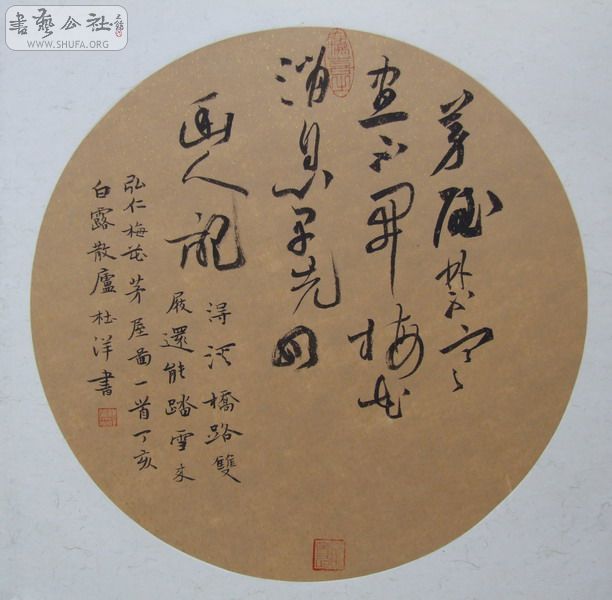 書藝公社
WWW.SHUFA.ORG
茅屋禁寒
晝不開梅花
消息早先回
幽人記
得溪橋路雙
屐還能踏雪來
弘仁梅花茅屋圖一首丁亥
白露散廬杜洋書